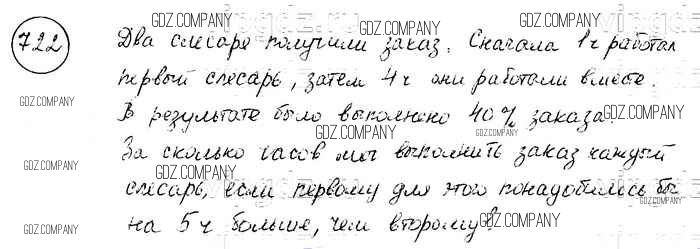 GDZ.COMPANY
722 Два слесаря получили заказ. Сначала 1 ч работал
GDZ.COMPANY
первый слесарь, затем 4 ч они работали вместе.
GDZ.COMPANY GDZ.COMPANY
В результате было выполнено 40% заказа.
GDZ.COMPANY GDZ.COMPANY
За сколько часов мог выполнить заказ каждый
GDZ.COMPANY GDZ.COMPANY
слесарь, если первому для этого понадобилось бы
GDZ.COMPANY GDZ.COMPANY
на 5 ч больше, чем второму?